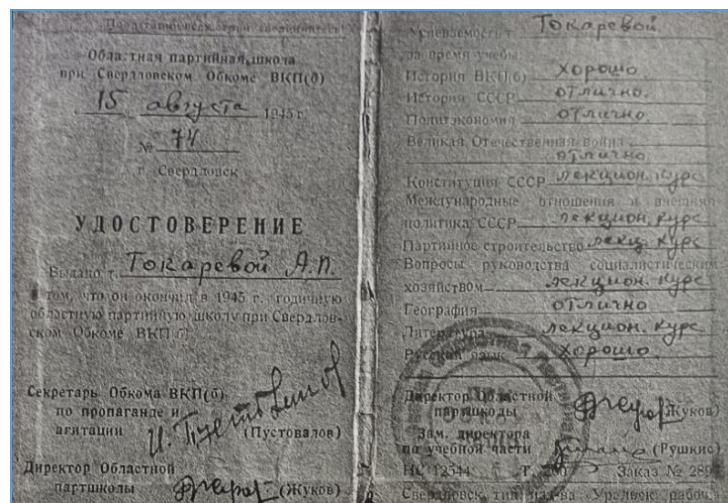 Областная партийная школа
при Свердловском Обкоме ВКП(б)
15 августа 1945 г.
№ 74
г. Свердловск
УДОСТОВЕРЕНИЕ
Выдано т. Токаревой А.П.
в том, что он окончил в 1945 г. годичную
областную партийную школу при Свердлов-
ском Обкоме ВКП(б).
Секретарь Обкома ВКП(б)
по пропаганде и
агитации (Пустовалов)
Директор Областной
партшколы (Жуков)
Успеваемость т. Токаревой
за время учебы:
История ВКП(б) хорошо
История СССР отлично
Политэкономия отлично
Великая Отечественная война
отлично
Конституция СССР лекцион. курс
Международные отношения и внешняя
политика СССР лекцион. курс
Партийное строительство лекц. курс
Вопросы руководства социалистическим
хозяйством лекцион. курс
География отлично
Литература лекцион. курс
Русский язык хорошо
Директор Областной
партшколы (Жуков)
Зам. директора
по учебной части (Рушкис)
НС 12544 Т. 200 Заказ № 289
Свердловск тип. изд-ва „Уральский рабоч